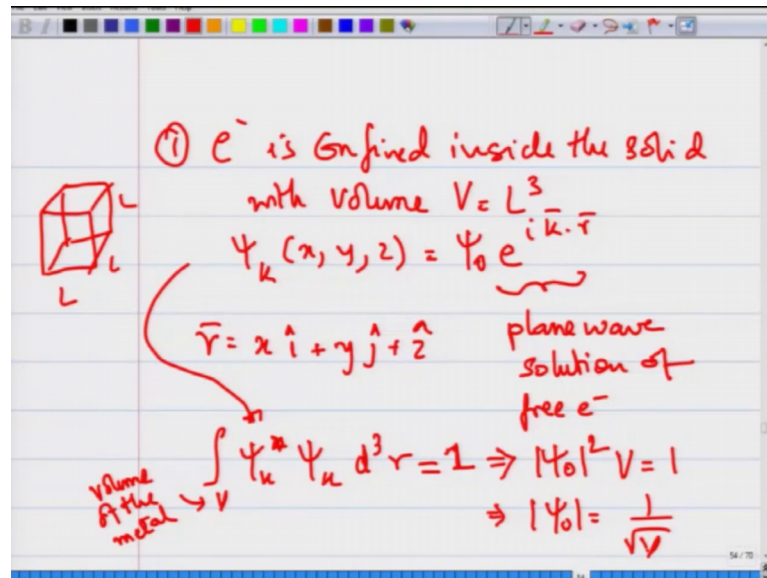 ① e⁻ is Confined inside the solid
with volume V = L³
L
L
L
Ψₖ (x, y, z) = Ψ₀ e^{i k̄·r̄}
r̄ = x î + y ĵ + ẑ
plane wave
solution of
free e⁻
∫_V Ψₖ* Ψₖ d³r = 1 ⇒ |Ψ₀|² V = 1
volume
of the
metal
⇒ |Ψ₀| = 1/√V
54 / 70